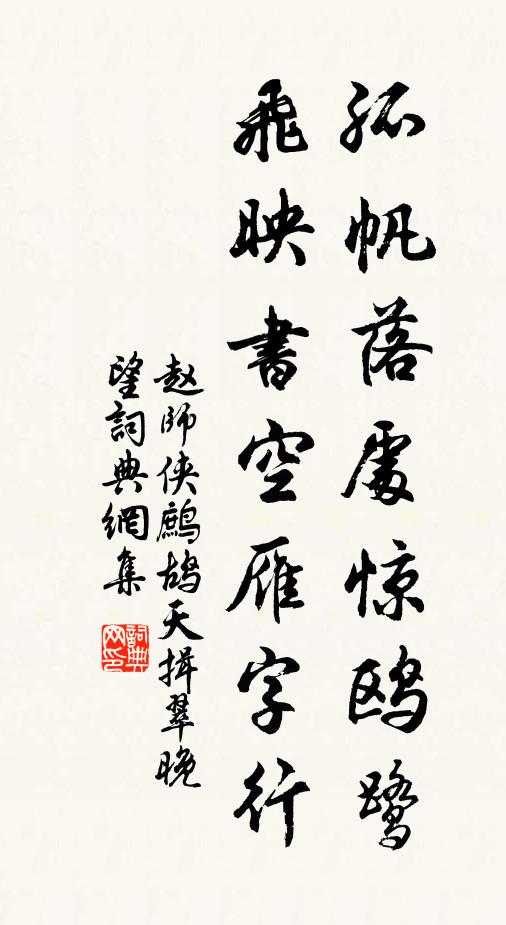 孤帆落處惊鸥鹭
飛映書空雁字行
赵师侠鷓鸪天揖翠晚
望詞典網集
詞典网印